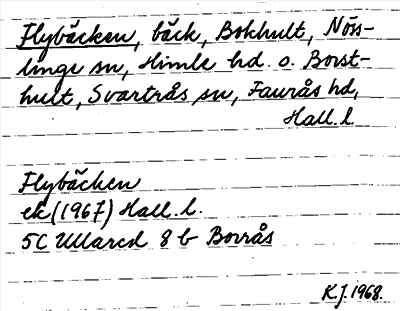 Flybäcken, bäck, Bokhult, Nös-
linge sn, Himle hd. o. Borst-
hult, Svartrås sn, Faurås hd,
Hall. l.
Flybäcken
ek (1967) Hall. l.
5C Ullared 8 b Borrås
K.J. 1968.